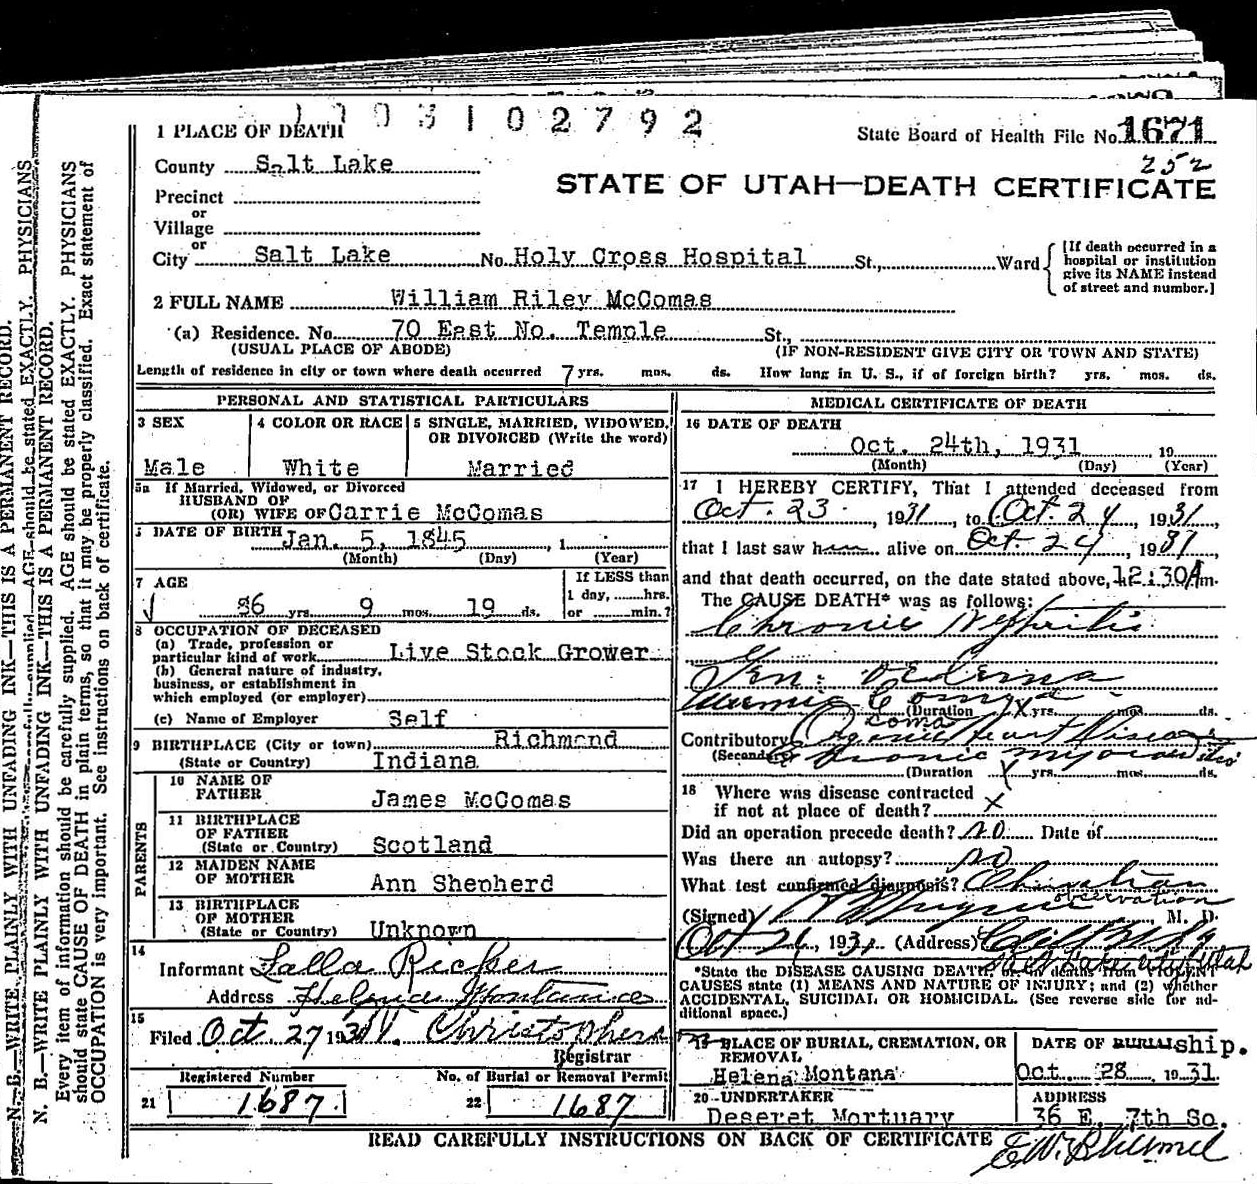 N. B.—WRITE PLAINLY WITH UNFADING INK—THIS IS A PERMANENT RECORD.
Every item of information should be carefully supplied. AGE should be stated EXACTLY. PHYSICIANS
should state CAUSE OF DEATH in plain terms, so that it may be properly classified. Exact statement of
OCCUPATION is very important. See instructions on back of certificate.
3102792
1 PLACE OF DEATH
State Board of Health File No. 1671
252
County Salt Lake
STATE OF UTAH—DEATH CERTIFICATE
Precinct
or
Village
or
City Salt Lake No. Holy Cross Hospital St., Ward
[If death occurred in a hospital or institution give its NAME instead of street and number.]
2 FULL NAME William Riley McComas
(a) Residence. No. 70 East No. Temple St.,
(USUAL PLACE OF ABODE) (IF NON-RESIDENT GIVE CITY OR TOWN AND STATE)
Length of residence in city or town where death occurred 7 yrs. mos. ds. How long in U. S., if of foreign birth? yrs. mos. ds.
PERSONAL AND STATISTICAL PARTICULARS
3 SEX
Male
4 COLOR OR RACE
White
5 SINGLE, MARRIED, WIDOWED, OR DIVORCED (Write the word)
Married
5a If Married, Widowed, or Divorced
HUSBAND OF
(OR) WIFE OF Carrie McComas
DATE OF BIRTH Jan. 5, 1845, 1
(Month) (Day) (Year)
7 AGE
86 yrs. 9 mos. 19 ds.
If LESS than
1 day, hrs.
or min.?
8 OCCUPATION OF DECEASED
(a) Trade, profession or
particular kind of work Live Stock Grower
(b) General nature of industry,
business, or establishment in
which employed (or employer)
(c) Name of Employer Self
9 BIRTHPLACE (City or town) Richmond
(State or Country) Indiana
PARENTS
10 NAME OF
FATHER James McComas
11 BIRTHPLACE
OF FATHER
(State or Country) Scotland
12 MAIDEN NAME
OF MOTHER Ann Shepherd
13 BIRTHPLACE
OF MOTHER
(State or Country) Unknown
14
Informant Lalla Ricker
Address Helena Montana
15
Filed Oct 27 1931 Christophers
Registrar
Registered Number No. of Burial or Removal Permit
21 1687 22 1687
MEDICAL CERTIFICATE OF DEATH
16 DATE OF DEATH
Oct. 24th, 1931 19
(Month) (Day) (Year)
17 I HEREBY CERTIFY, That I attended deceased from
Oct. 23, 1931, to Oct. 24, 1931,
that I last saw h alive on Oct. 24, 1931,
and that death occurred, on the date stated above, 12:30A m.
The CAUSE DEATH* was as follows:
Chronic Nephritis
Gen. Edema
Uremic Coma
(Duration yrs. mos. ds.
coma
Contributory Organic Heart Disease
(Secondary) Chronic myocarditis
(Duration yrs. mos. ds.
18 Where was disease contracted
if not at place of death? X
Did an operation precede death? no Date of
Was there an autopsy? no
What test confirmed diagnosis?
observation
(Signed) , M. D.
Oct 26, 1931 (Address)
Salt Lake City Utah
*State the DISEASE CAUSING DEATH, or, in deaths from VIOLENT
CAUSES state (1) MEANS AND NATURE OF INJURY; and (2) whether
ACCIDENTAL, SUICIDAL OR HOMICIDAL. (See reverse side for ad-
ditional space.)
19 PLACE OF BURIAL, CREMATION, OR
REMOVAL
Helena Montana
DATE OF BURIAL ship.
Oct. 28, 1931.
20 UNDERTAKER
Deseret Mortuary
ADDRESS
36 E. 7th So.
READ CAREFULLY INSTRUCTIONS ON BACK OF CERTIFICATE